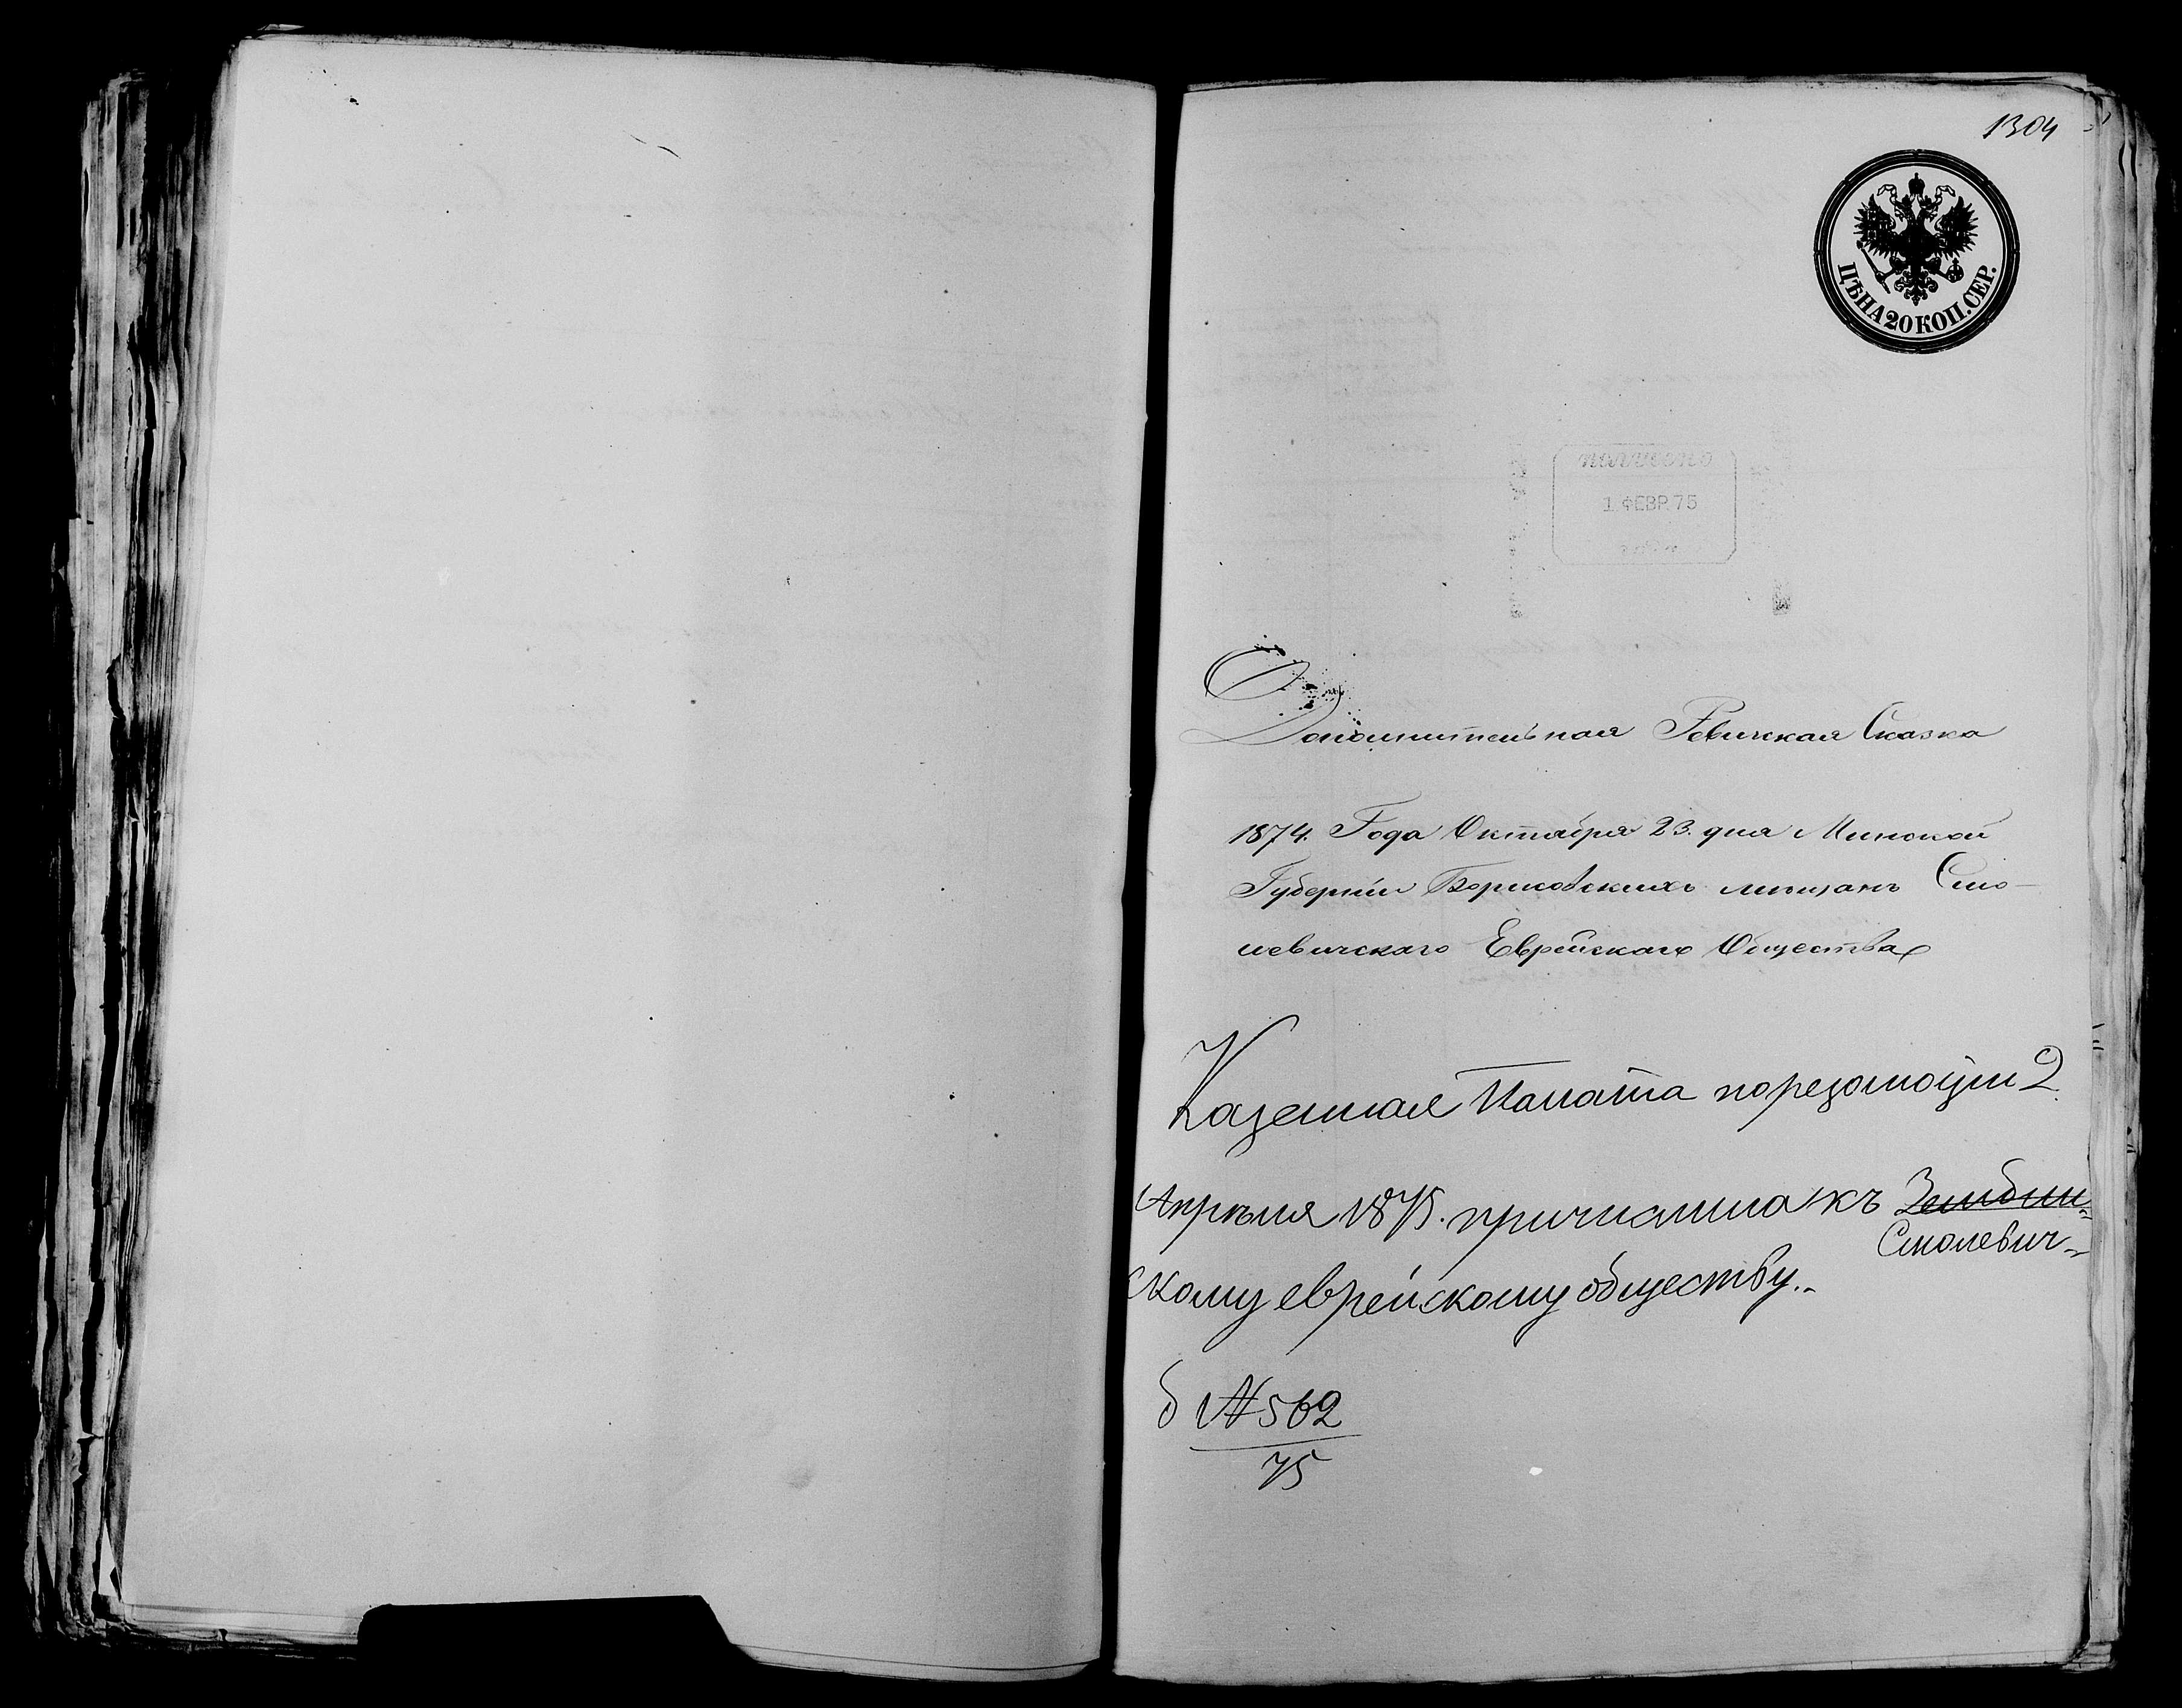 1304
ЦѢНА 20 КОП. СЕР.
получено
1 ФЕВР. 75
Дополнительная Ревизская Сказка
1874. Года Октября 23. дня Минской
Губерніи Борисовскихъ мѣщанъ Смо-
левичскаго Еврейскаго Общества
Казенная Палата по резолюціи 2
Апрѣля 1875. причислила къ Зембин=
Смолевич=
скому еврейскому обществу.
б № 562
75